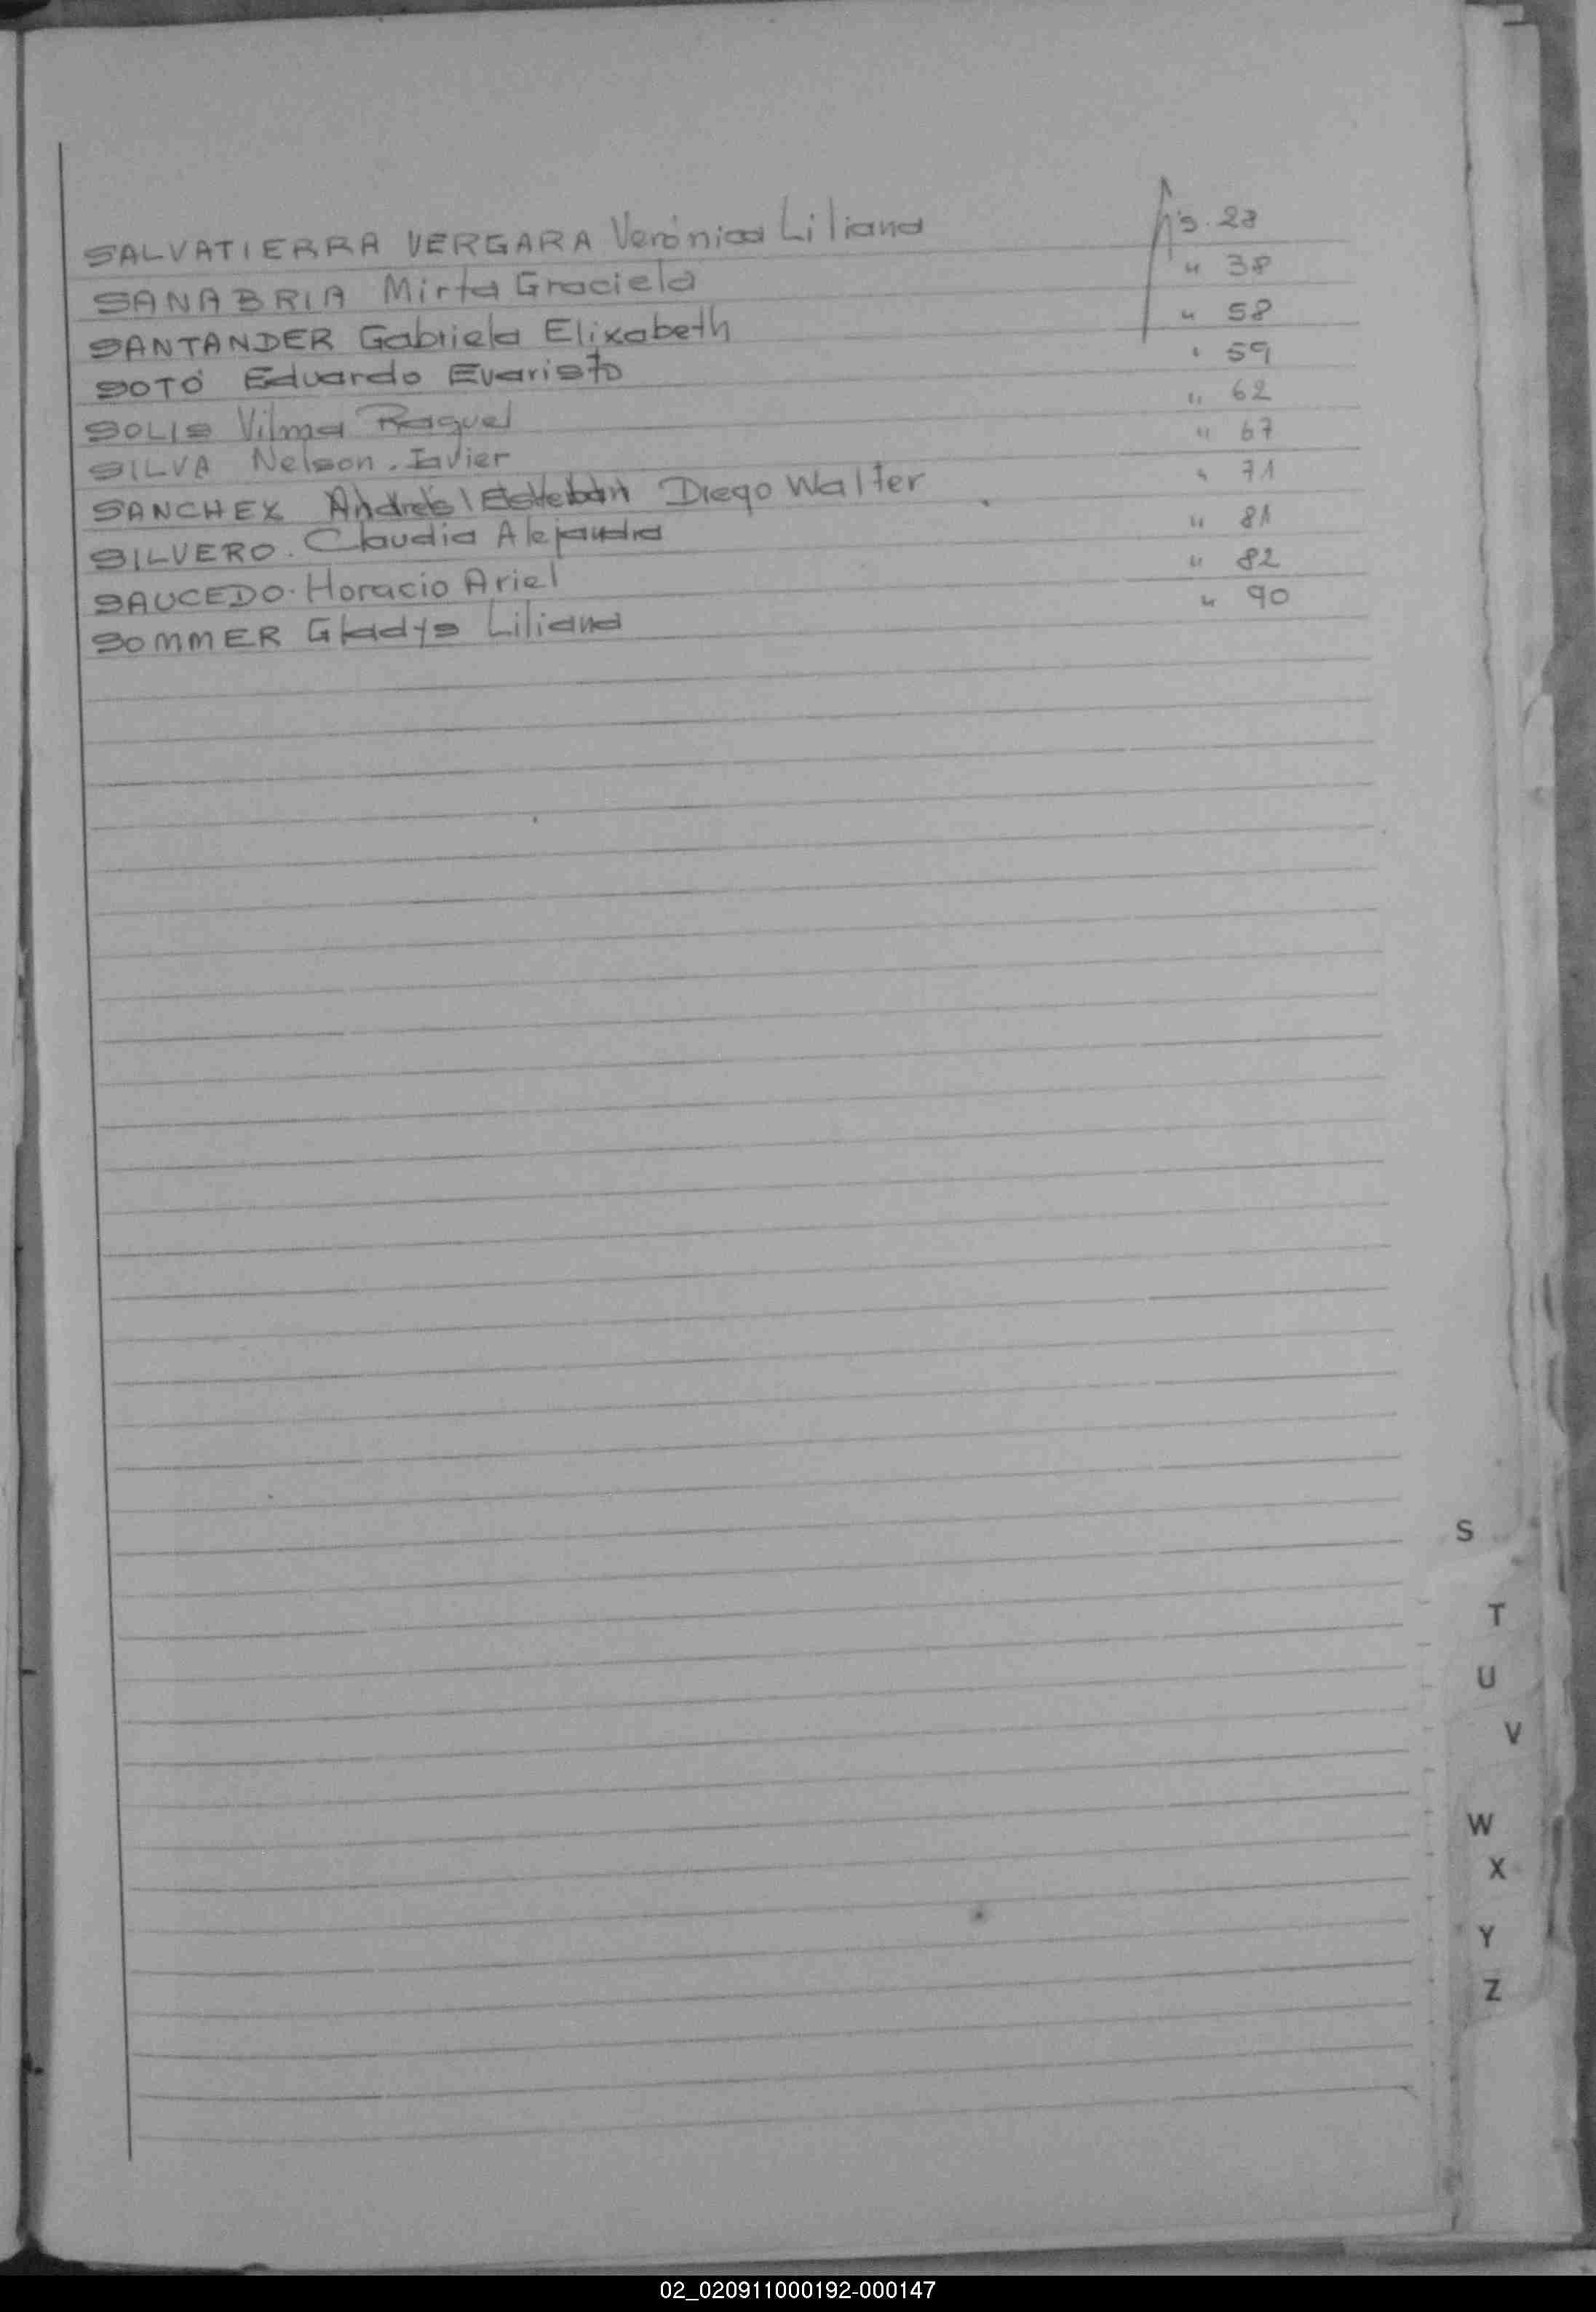 SALVATIERRA VERGARA Verónica Liliana fs. 28
SANABRIA Mirta Graciela " 38
SANTANDER Gabriela Elizabeth " 58
SOTO Eduardo Evaristo " 59
SOLIS Vilma Raquel " 62
SILVA Nelson. Javier " 67
SANCHEZ Andrés Esteban Diego Walter " 71
SILVERO. Claudia Alejandra " 81
SAUCEDO. Horacio Ariel " 82
SOMMER Gladys Liliana " 90
S
T
U
V
W
X
Y
Z
02_020911000192-000147